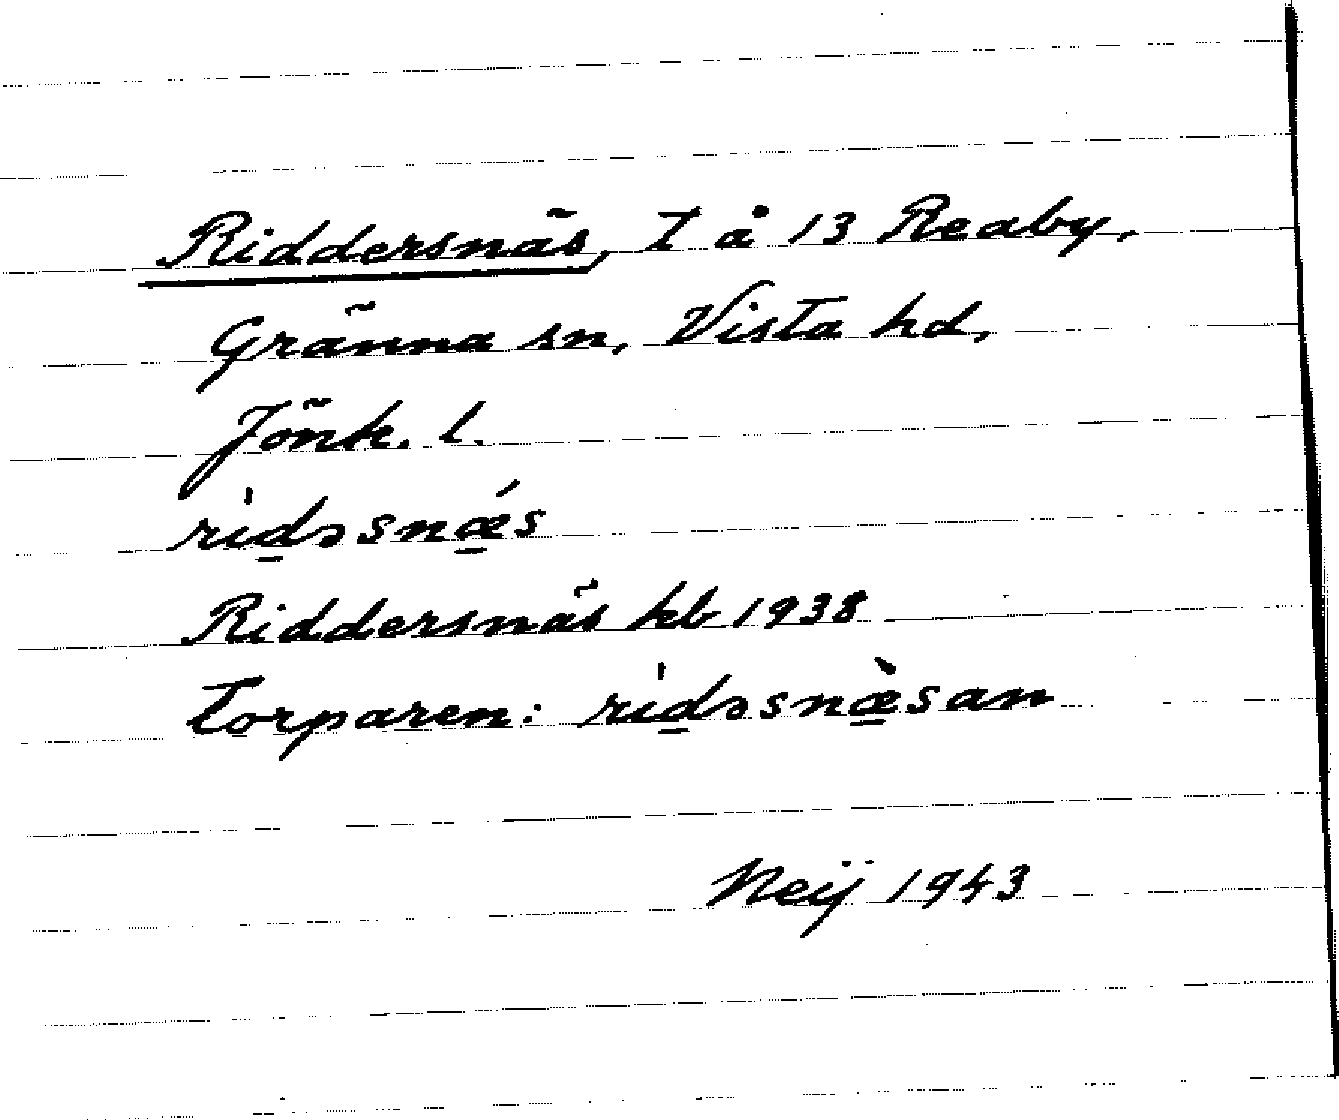 Riddersnäs, T å 13 Reaby,
Gränna sn, Vista hd,
Jönk. l.
rìd̲əsnǽ̲s
Riddersnäs kb 1938
Torparen: rìd̲əsnæ̲̀san
Neij 1943